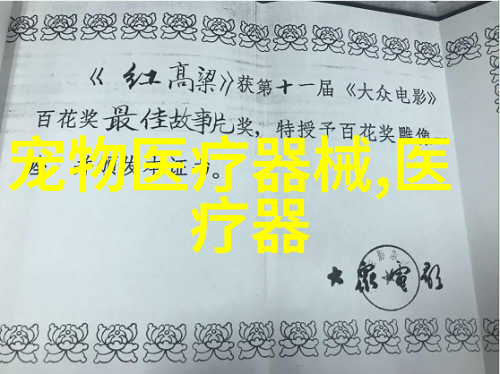 《红高粱》获第十一届《大众电影》
百花奖最佳故事片奖，特授予百花奖雕像一
座，并颁发本证书。
宠物医疗器械,医
疗器
大众电影